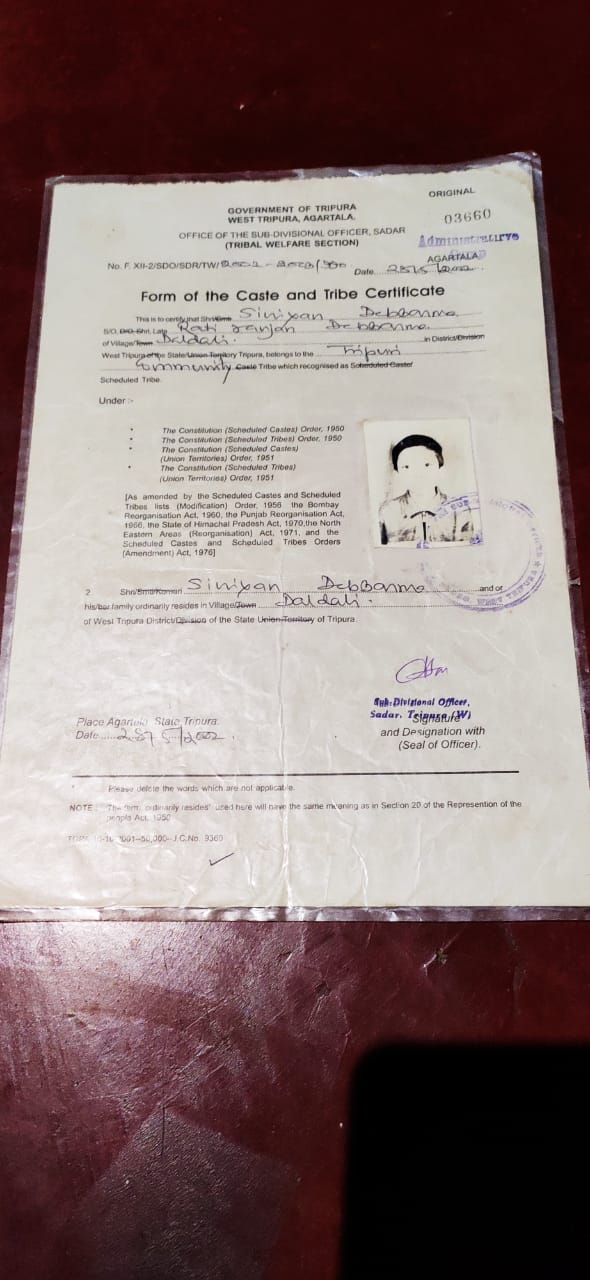 ORIGINAL
GOVERNMENT OF TRIPURA
WEST TRIPURA, AGARTALA.
03660
OFFICE OF THE SUB-DIVISIONAL OFFICER, SADAR
(TRIBAL WELFARE SECTION)
AGARTALA
No. F. XII-2/SDO/SDR/TW/
Date
Form of the Caste and Tribe Certificate
This is to certify that Shri/Smt Sinixan Debbarma
S/O, D/O Shri, Late Rati ranjan Debbarma
of Village/Town Daldali. in District/Division
West Tripura of the State/Union Territory Tripura, belongs to the Tripuri
Community Caste Tribe which recognised as Scheduled Caste/
Scheduled Tribe.
Under :-
* The Constitution (Scheduled Castes) Order, 1950
* The Constitution (Scheduled Tribes) Order, 1950
* The Constitution (Scheduled Castes)
(Union Territories) Order, 1951
* The Constitution (Scheduled Tribes)
(Union Territories) Order, 1951
[As amended by the Scheduled Castes and Scheduled
Tribes lists (Modification) Order, 1956 the Bombay
Reorganisation Act, 1960, the Punjab Reorganisation Act,
1966, the State of Himachal Pradesh Act, 1970,the North
Eastern Areas (Reorganisation) Act, 1971, and the
Scheduled Castes and Scheduled Tribes Orders
(Amendment) Act, 1976]
2 Shri/Smti/Kumari Sinixan Debbarma and or
his/her family ordinarily resides in Village/Town Daldali.
of West Tripura District/Division of the State Union Territory of Tripura.
Sub-Divisional Officer,
Sadar, Tripura (W)
Signature
Place Agartala State Tripura.
and Designation with
Date
(Seal of Officer).
* Please delete the words which are not applicable.
NOTE : The term 'ordinarily resides' used here will have the same meaning as in Section 20 of the Represention of the
people Act, 1950
2001--50,000--J.C.No. 9360